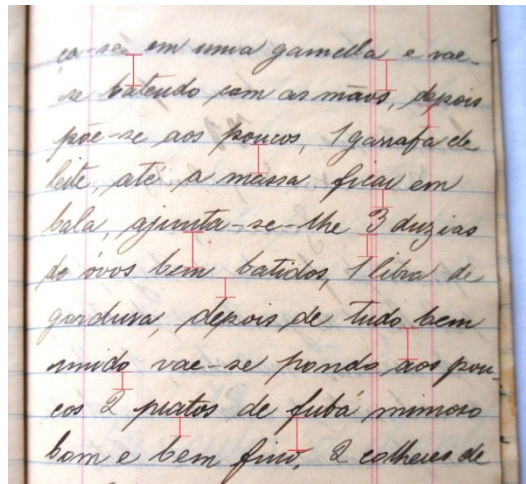 ca-se em uma gamella e vae-
se batendo com as mãos, depois
põe-se aos poucos, 1 garrafa de
leite, até a massa ficar em
bala, ajunta-se-lhe 3 duzias
de óvos bem batidos, 1 libra de
gordura, depois de tudo bem
unido vae-se pondo aos pou-
cos 2 pratos de fubá mimoso
bom e bem fino, 2 colheres de